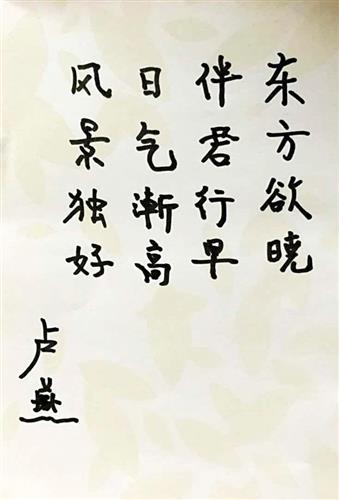 东方欲晓
伴君行早
日气漸高
风景独好
卢燕